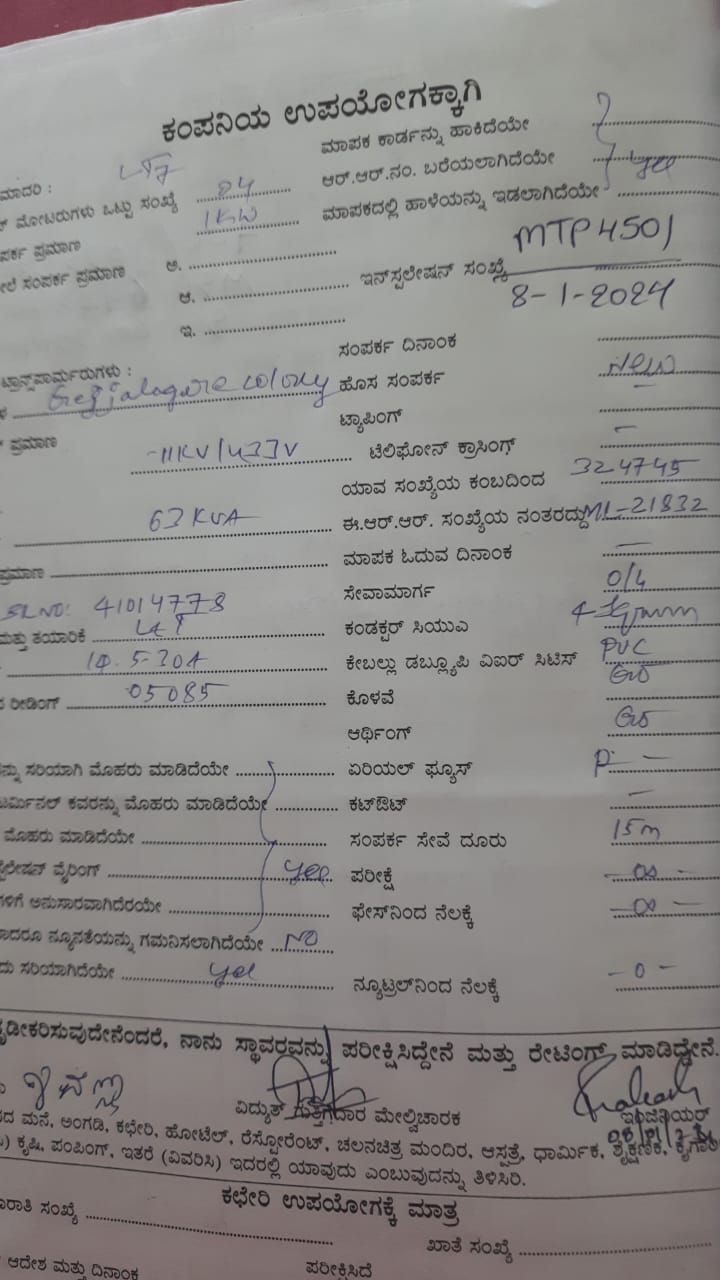 ಕಂಪನಿಯ ಉಪಯೋಗಕ್ಕಾಗಿ
ಮಾಪಕ ಕಾರ್ಡನ್ನು ಹಾಕಿದೆಯೇ
ಮಾದರಿ : LT7
ಆರ್.ಆರ್.ನಂ. ಬರೆಯಲಾಗಿದೆಯೇ
ಮೋಟರುಗಳು ಒಟ್ಟು ಸಂಖ್ಯೆ 04
ಮಾಪಕದಲ್ಲಿ ಹಾಳೆಯನ್ನು ಇಡಲಾಗಿದೆಯೇ yes
ಪ್ರಮಾಣ 1KW
ಸಂಪರ್ಕ ಪ್ರಮಾಣ ಅ.
MTP4501
ಆ. ಇನ್‌ಸ್ಪಲೇಷನ್ ಸಂಖ್ಯೆ
8-1-2024
ಇ.
ಸಂಪರ್ಕ ದಿನಾಂಕ
ಟ್ರಾನ್ಸ್‌ಫಾರ್ಮರುಗಳು :
colony ಹೊಸ ಸಂಪರ್ಕ New
ಟ್ಯಾಪಿಂಗ್ –
ಪ್ರಮಾಣ -11KV/433V ಟೆಲಿಫೋನ್ ಕ್ರಾಸಿಂಗ್ –
ಯಾವ ಸಂಖ್ಯೆಯ ಕಂಬದಿಂದ 324745
63 KVA ಈ.ಆರ್.ಆರ್. ಸಂಖ್ಯೆಯ ನಂತರದ್ದು ML-21832
ಪ್ರಮಾಣ ಮಾಪಕ ಓದುವ ದಿನಾಂಕ –
SL NO: 41014778 ಸೇವಾಮಾರ್ಗ O/4
ಮತ್ತು ತಯಾರಿಕೆ L&T ಕಂಡಕ್ಟರ್ ಸಿಯುಎ
5-30A ಕೇಬಲ್ಲು ಡಬ್ಲ್ಯೂಪಿ ವಿಐರ್ ಸಿಟಿಸ್ PVC
ರೀಡಿಂಗ್ 05085 ಕೊಳವೆ
ಆರ್ಥಿಂಗ್
ಸರಿಯಾಗಿ ಮೊಹರು ಮಾಡಿದೆಯೇ ಏರಿಯಲ್ ಫ್ಯೂಸ್ P. –
ಕವರನ್ನು ಮೊಹರು ಮಾಡಿದೆಯೇ ಕಟ್‌ಔಟ್ –
ಮೊಹರು ಮಾಡಿದೆಯೇ ಸಂಪರ್ಕ ಸೇವೆ ದೂರು 15m
ವೈರಿಂಗ್ yes ಪರೀಕ್ಷೆ – ∞ –
ಅನುಸಾರವಾಗಿದೆರಯೇ ಫೇಸ್‌ನಿಂದ ನೆಲಕ್ಕೆ – ∞ –
ನ್ಯೂನತೆಯನ್ನು ಗಮನಿಸಲಾಗಿದೆಯೇ NO
ಸರಿಯಾಗಿದೆಯೇ yes ನ್ಯೂಟ್ರಲ್‌ನಿಂದ ನೆಲಕ್ಕೆ – 0 –
ದೃಡೀಕರಿಸುವುದೇನೆಂದರೆ, ನಾನು ಸ್ಥಾವರವನ್ನು ಪರೀಕ್ಷಿಸಿದ್ದೇನೆ ಮತ್ತು ರೇಟಿಂಗ್ ಮಾಡಿದ್ದೇನೆ.
ವಿದ್ಯುತ್ ಗುತ್ತಿಗೆದಾರ ಮೇಲ್ವಿಚಾರಕ
ಇಂಜಿನಿಯರ್
ಮನೆ, ಅಂಗಡಿ, ಕಛೇರಿ, ಹೋಟೆಲ್, ರೆಸ್ಟೋರೆಂಟ್, ಚಲನಚಿತ್ರ ಮಂದಿರ, ಆಸ್ಪತ್ರೆ, ಧಾರ್ಮಿಕ, ಶೈಕ್ಷಣಿಕ,
ಕೃಷಿ, ಪಂಪಿಂಗ್, ಇತರೆ (ವಿವರಿಸಿ) ಇದರಲ್ಲಿ ಯಾವುದು ಎಂಬುವುದನ್ನು ತಿಳಿಸಿರಿ.
ಕಛೇರಿ ಉಪಯೋಗಕ್ಕೆ ಮಾತ್ರ
ಸಂಖ್ಯೆ ಖಾತೆ ಸಂಖ್ಯೆ
ಆದೇಶ ಮತ್ತು ದಿನಾಂಕ ಪರೀಕ್ಷಿಸಿದೆ